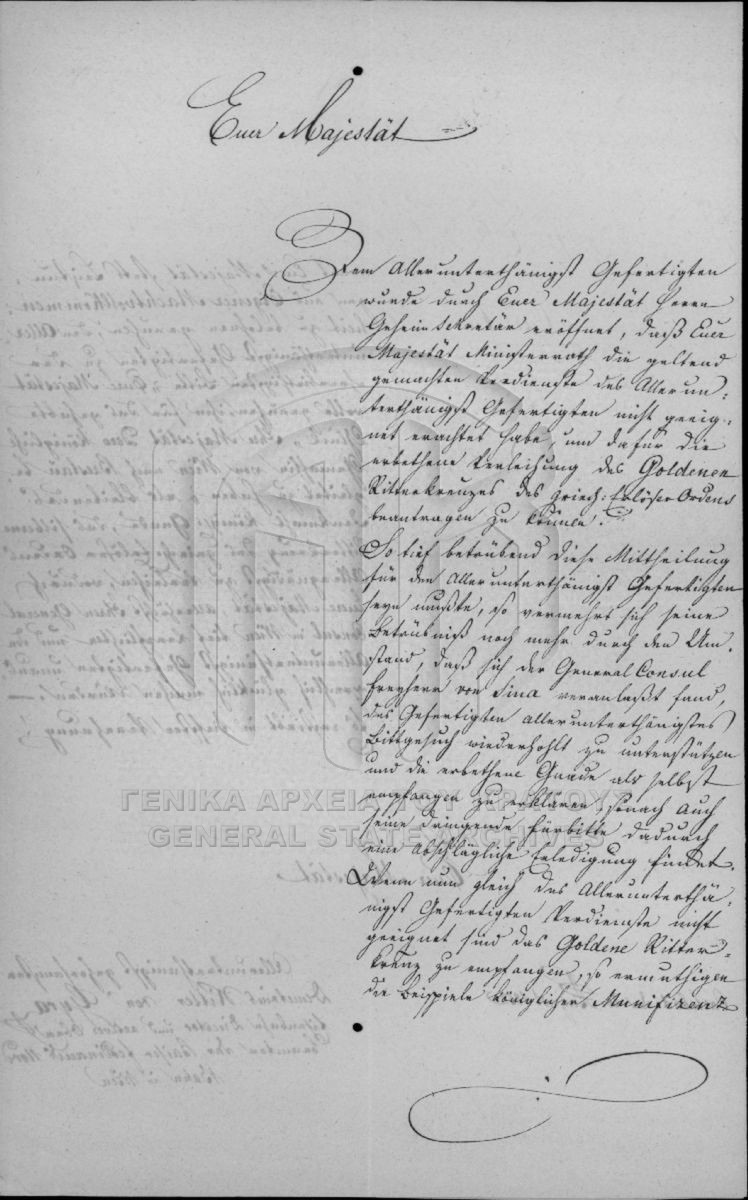 Euer Majestät
Dem Allerunterthänigst Gefertigten
wurde durch Euer Majestät Herrn
Geheim Sekretär eröffnet, daß Euer
Majestät Ministerrath die geltend
gemachten Verdienste des Allerun-
terthänigst Gefertigten nicht geeig-
net erachtet habe, um dafür die
erbethene Verleihung des Goldenen
Ritterkreuzes des griech: Erlöser Ordens
beantragen zu können!
So tief betrübend diese Mittheilung
für den Allerunterthänigst Gefertigten
seyn mußte, so vermehrt sich seine
Betrübniß noch mehr durch den Um-
stand, daß sich der General Consul
Freyherr von Sina veranlaßt fand,
des Gefertigten allerunterthänigstes
Bittgesuch wiederhohlt zu unterstützen
und die erbethene Gnade als selbst
empfangen zu erklären, sonach auch
seine dringende Fürbitte dadurch
eine abschlägliche Erledigung findet.
Wenn nun gleich des Allerunterthä-
nigst Gefertigten Verdienste nicht
geeignet sind das Goldene Ritter-
kreuz zu empfangen, so ermuthigen
die Beispiele königlicher Munifizenz
ΓΕΝΙΚΑ ΑΡΧΕΙΑ ΤΟΥ ΚΡΑΤΟΥΣ
GENERAL STATE ARCHIVES